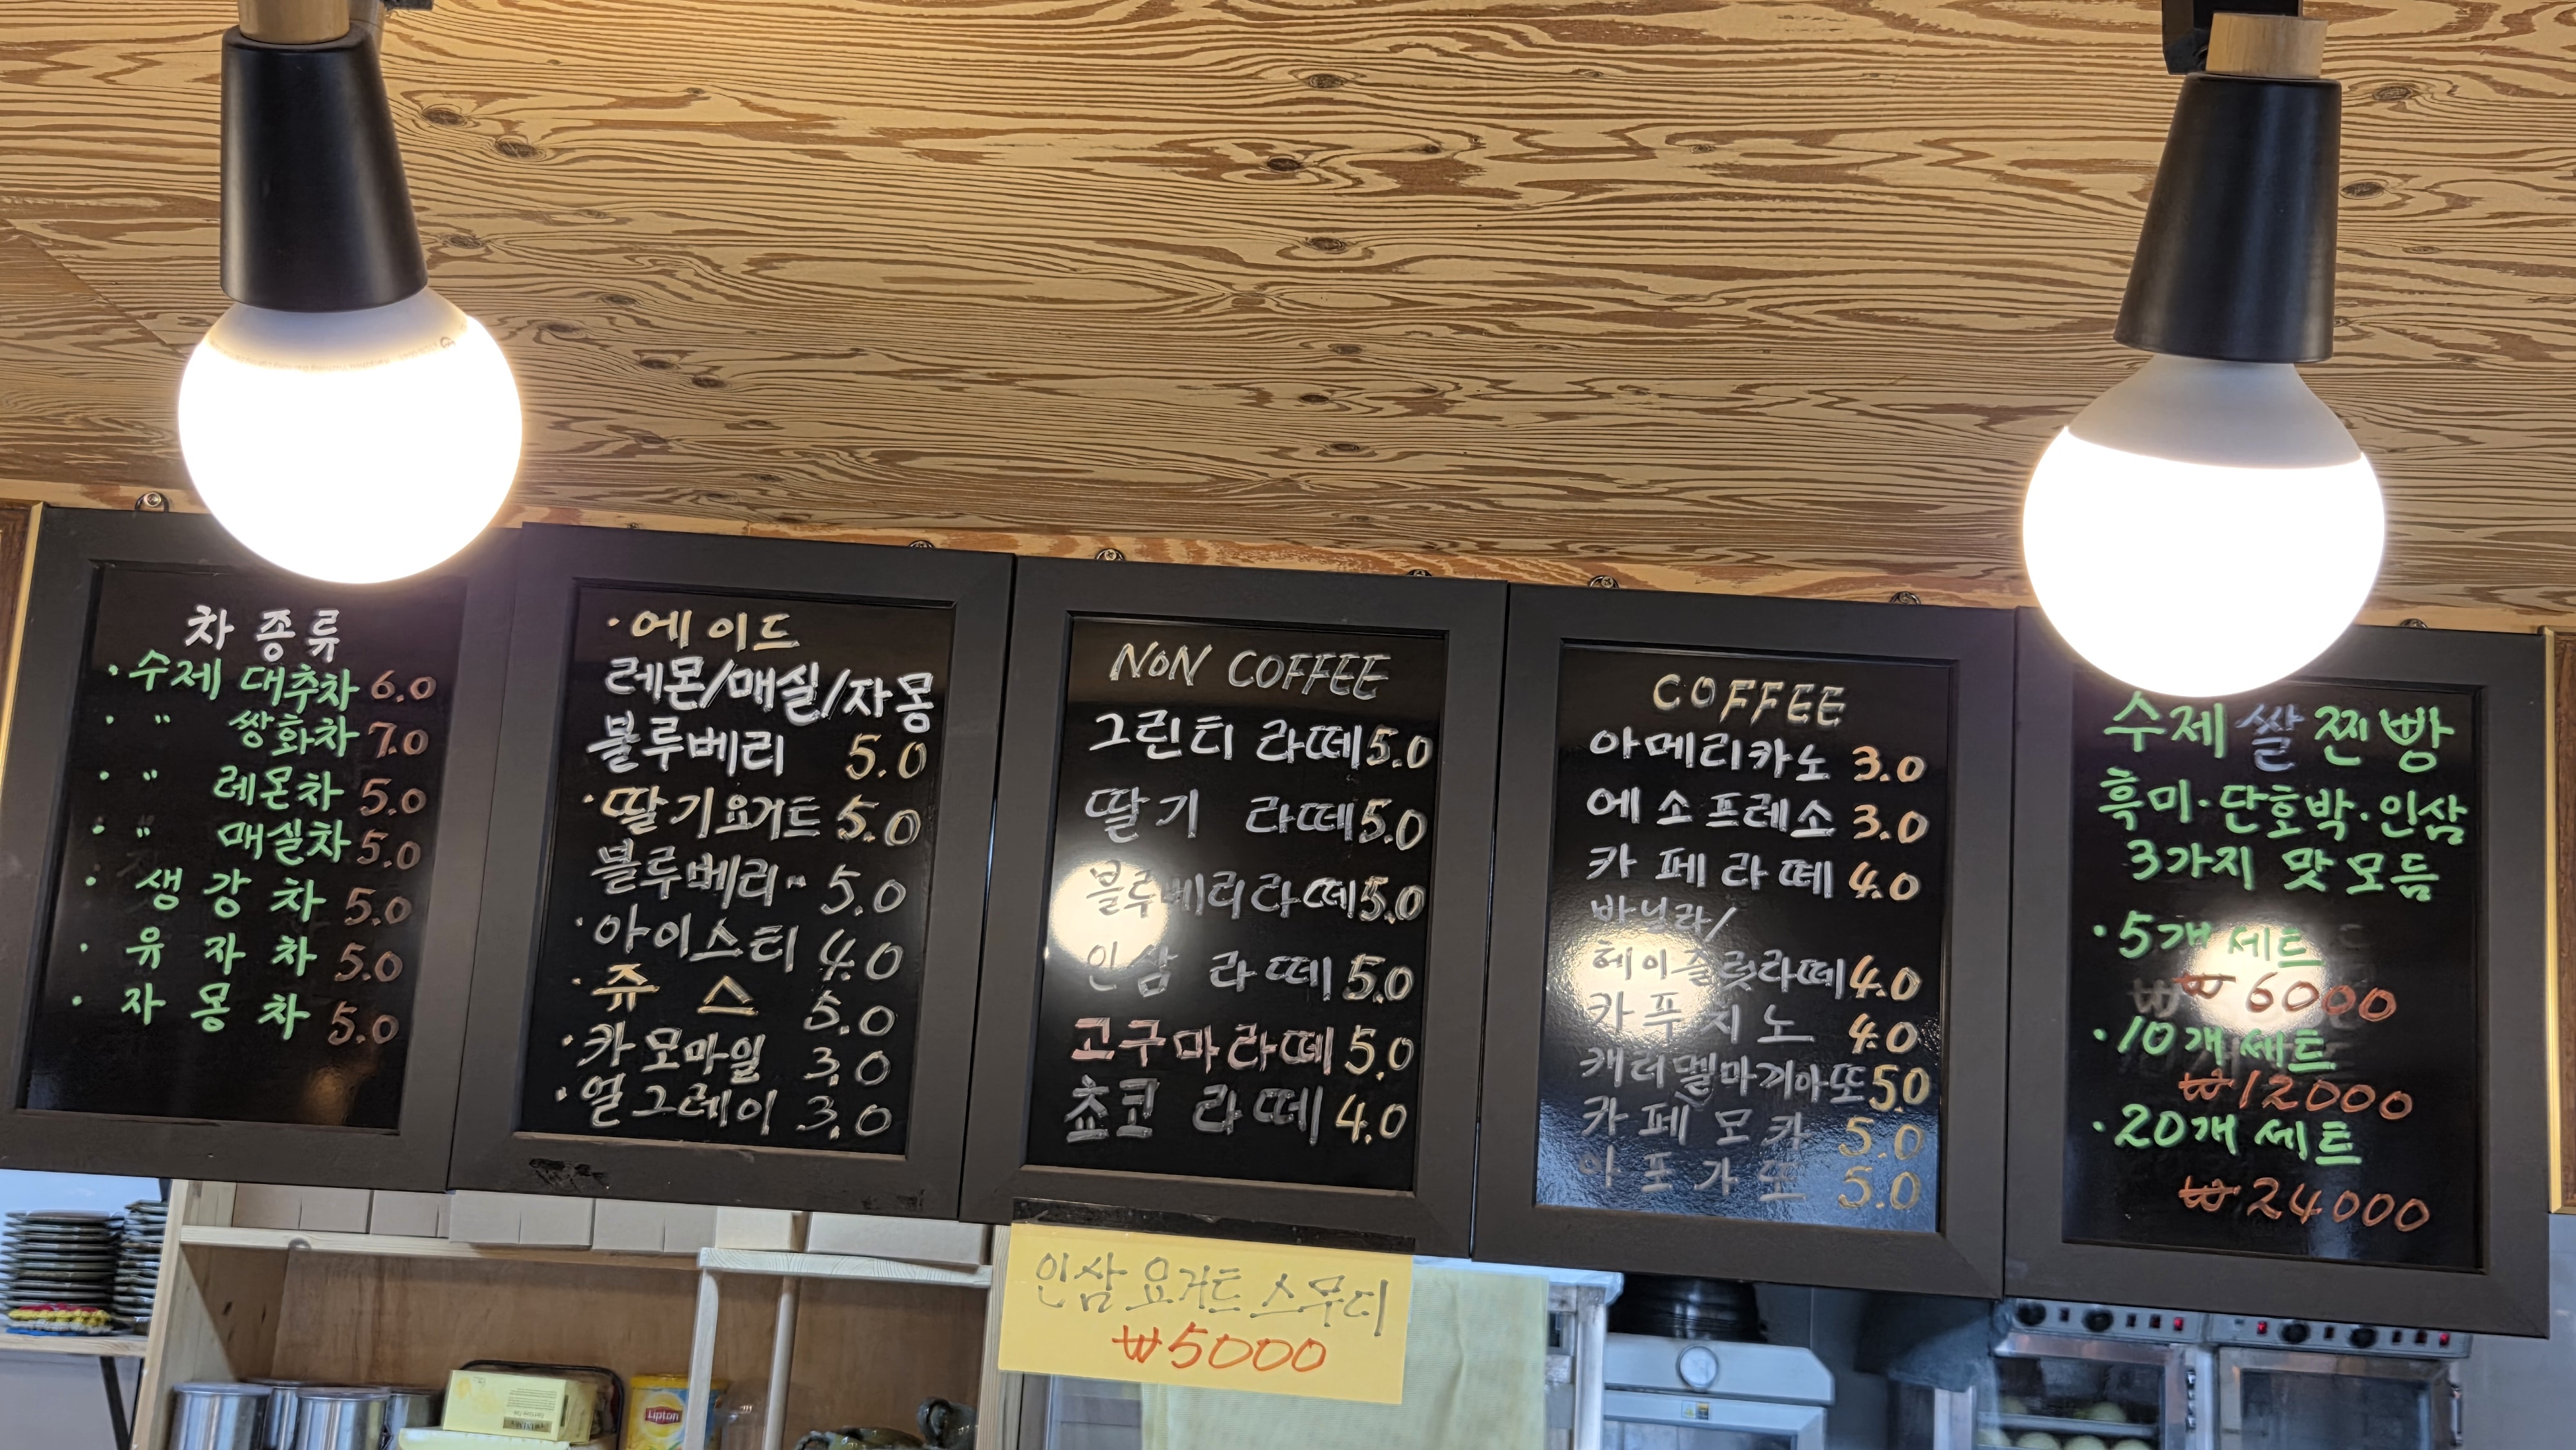 차 종류
· 수제 대추차 6.0
· " 쌍화차 7.0
· " 레몬차 5.0
· " 매실차 5.0
· 생강차 5.0
· 유자차 5.0
· 자몽차 5.0
· 에이드
레몬/매실/자몽
블루베리 5.0
· 딸기요거트 5.0
블루베리 " 5.0
· 아이스티 4.0
· 쥬스 5.0
· 카모마일 3.0
· 얼그레이 3.0
NON COFFEE
그린티 라떼 5.0
딸기 라떼 5.0
블루베리라떼 5.0
인삼 라떼 5.0
고구마라떼 5.0
쵸코 라떼 4.0
인삼요거트 스무디
₩5000
COFFEE
아메리카노 3.0
에소프레소 3.0
카페라떼 4.0
바닐라/
헤이즐럿라떼 4.0
카푸치노 4.0
캐러멜마끼아또 5.0
카페모카 5.0
아포가또 5.0
수제 쌀 찐빵
흑미·단호박·인삼
3가지 맛 모듬
· 5개 세트
₩ 6000
· 10개 세트
₩12000
· 20개 세트
₩24000
Lipton